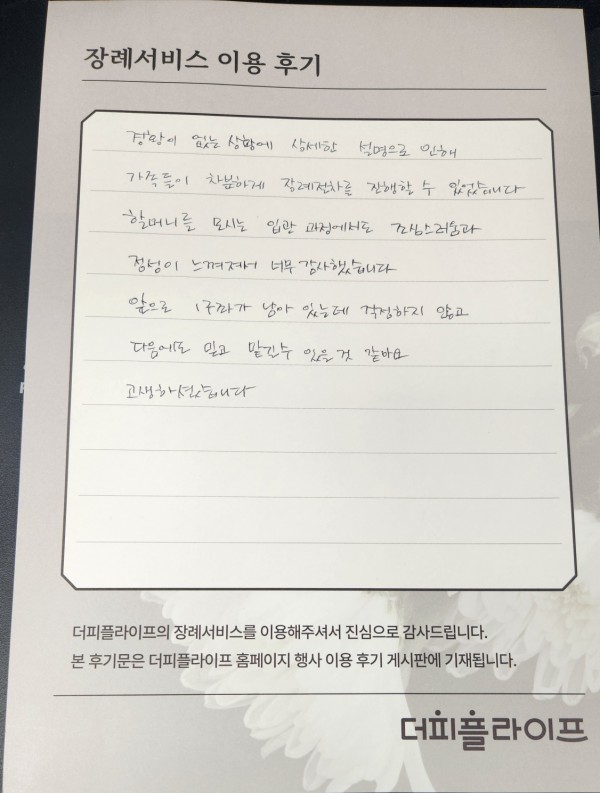 장례서비스 이용 후기
경황이 없는 상황에 상세한 설명으로 인해
가족들이 차분하게 장례절차를 진행할 수 있었습니다
할머니를 모시는 입관 과정에서도 조심스러움과
정성이 느껴져서 너무 감사했습니다
앞으로 1구좌가 남아 있는데 걱정하지 않고
다음에도 믿고 맡길수 있을것 같아요
고생하셨습니다
더피플라이프의 장례서비스를 이용해주셔서 진심으로 감사드립니다.
본 후기문은 더피플라이프 홈페이지 행사 이용 후기 게시판에 기재됩니다.
더피플라이프